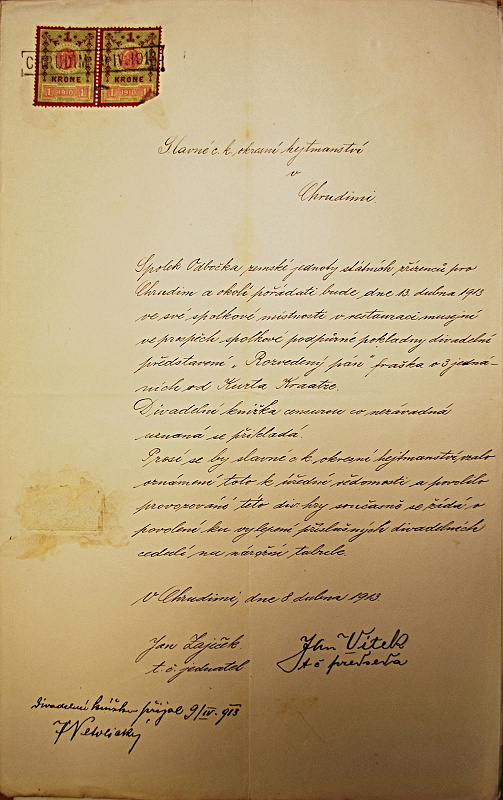 1 1
KRONE KRONE
1 1910 1 1 1910 1
CHRUDIM IV. 1913
Slavné c. k. okresní hejtmanství
v
Chrudimi.
Spolek Odbočka zemské jednoty státních zřízenců pro
Chrudim a okolí pořádati bude, dne 13. dubna 1913
ve své spolkové místnosti v restauraci musejní
ve prospěch spolkové podpůrné pokladny divadelní
představení „Rozvedený pán" fraška o 3 jedná-
ních od Kurta Kraatze.
Divadelní knížka censurou co nezávadná
uznaná se přikládá.
Prosí se by slavné c. k. okresní hejtmanství, vzalo
oznámení toto k úřední vědomosti a povolilo
provozování této div. hry současně se žádá o
povolení ku vylepení příslušných divadelních
cedulí na nárožní tabule.
V Chrudimi, dne 8. dubna 1913.
Jan Zajíček Jan Vítek
t. č. jednatel t č předseda
Divadelní knížku přijal 9/IV. 913
Netolický